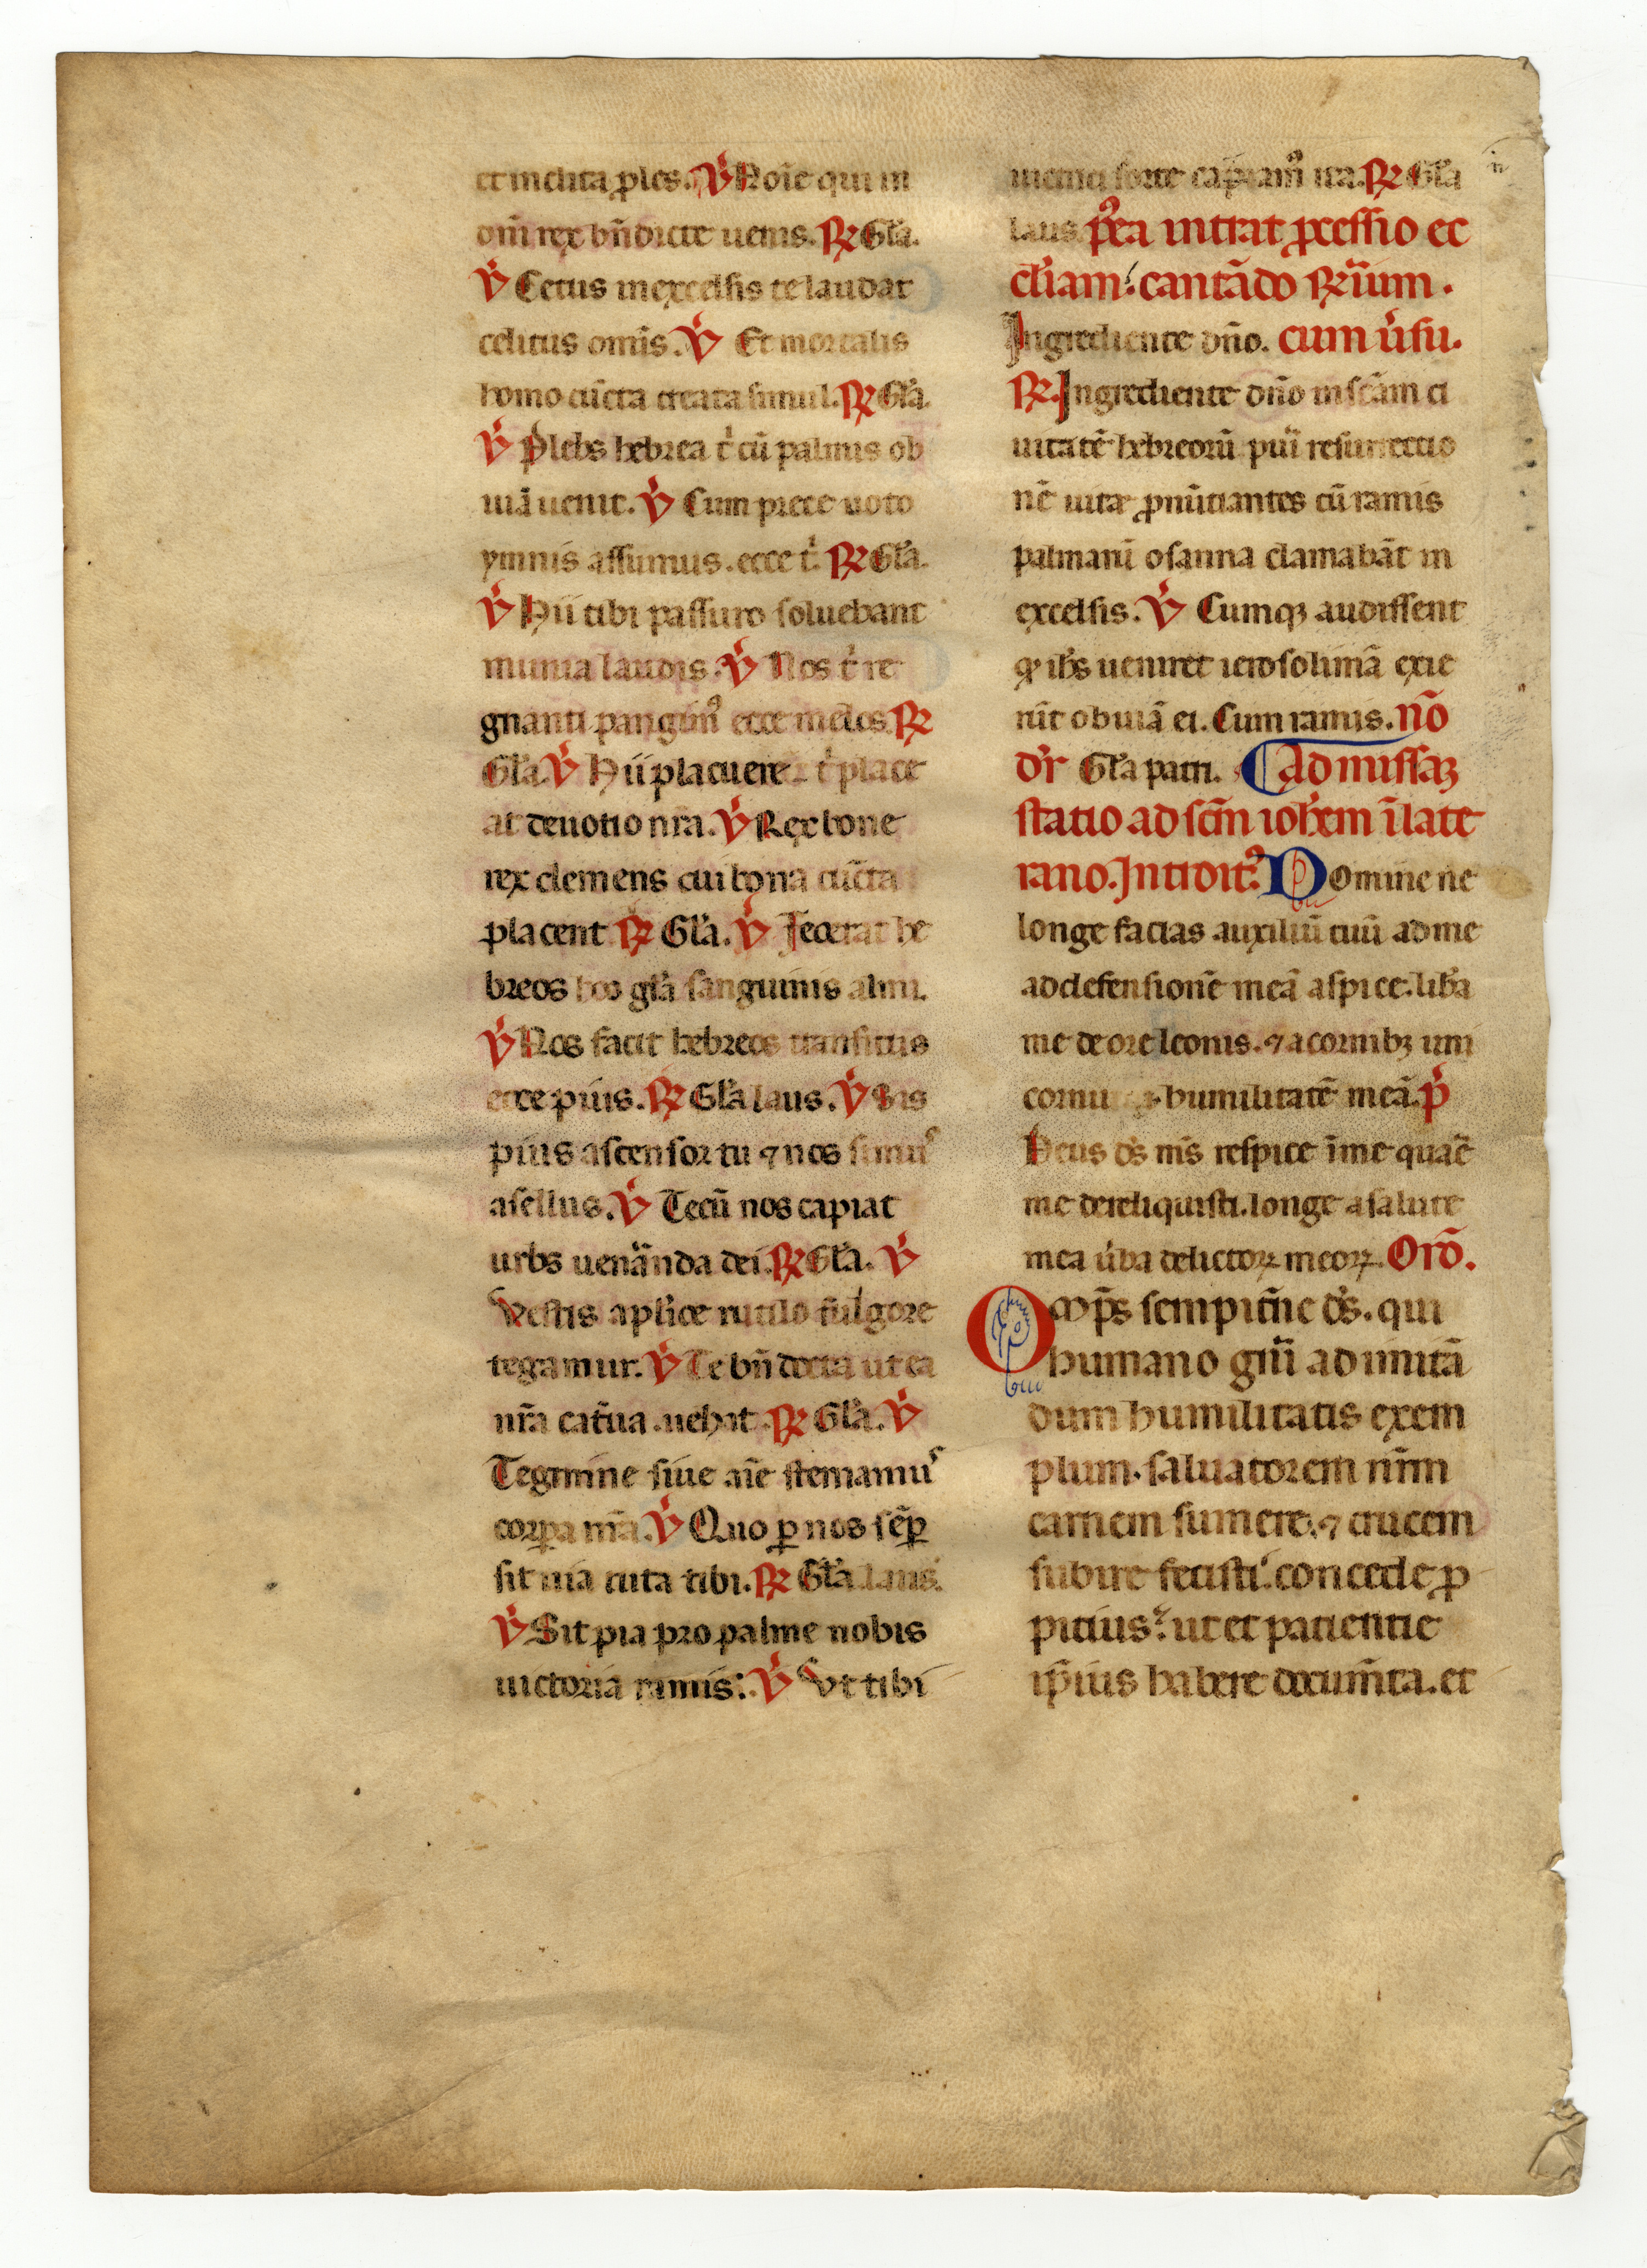 et inclita p̱les. V̓ Noi͂e qui in
om̄i rex bn̄dicte uenis. R̷ Gl̓a.
V̓ Cetus in excelsis te laudat
celitus omi͂s. V̓ Et mortalis
homo cūcta creata simul. R̷ Gl̓a.
V̓ Plebs hebrea t̓ cū palmis ob
uiā uenit. V̓ Cum prece uoto
ymnis assumus. ecce t̓. R̷ Gl̓a.
V̓ Hii tibi passuro soluebant
munia laudis. V̓ Nos t̓ re
gnanti pangim᷒ ecce melos R̷
Gl̓a. V̓ Hii placuere t̓ place
at deuotio nr̄a. V̓ Rex bone
rex clemens cui bona cūcta
placent R̷ Gl̓a. V̓ Fecerat he
breos hos gl̓a sanguinis alti.
V̓ Nos facit hebreos transitus
ecce pius. R̷ Gl̓a laus. V̓ Sis
pius ascensor tu ⁊ nos simu᷒
asellus. V̓ Tecū nos capiat
urbs uenānda dei. R̷ Gl̓a. V̓
Vestis apl̓ice rutilo fulgore
tegamur. V̓ Te bn̄ tecta ut ea
nr̄a cat̓ua uehat. R̷ Gl̓a. V̓
Tegmine siue aīe sternamu᷒
corꝑa nr̄a. V̓ Quo ꝑ nos sēꝑ
sit uia tuta tibi. R̷ Gl̓a laus.
V̓ Sit pia pro palme nobis
uictoria ramis. V̓ Vt tibi
sorte ca᷒ ita. R̷ Gl̓a
laus. p̓ea intrat ꝓcessio ec
cl̓iam. cantādo R̷ium.
Ingrediente dn̄o. cum u̓su.
R̷. Ingrediente dn̄o in scām ci
uitatē hebreorū pui̓ resurrectio
nē uite ꝓnūtiantes cū ramis
palmarū osanna clamabāt in
excelsis. V̓ Cumqꝫ audissent
ꝙ ih̄s ueniret ierosolimā exie
rūt obuiā ei. Cum ramis. nō
dr̄ Gl̓a patri. Ad missaꝫ
statio ad scm̄ ioh̄em i̅ late
rano. Introit᷒. Domine ne
longe facias auxiliū tuū a me
ad defensionē meā aspice. lib̓a
me de ore leonis. ⁊ a cornibꝫ uni
cornu humilitatē meā. p̓
Deus ds̄ ms̄ respice ī me quar̄e
me dereliquisti. longe a salute
mea u̓ba delictoꝝ meoꝝ. Orō.
Omp̄s sempit̓ne ds̄. qui
humano gn̄i ad imitā
dum humilitatis exem
plum. saluatorem nr̄m
carnem sumere. ⁊ crucem
subire fecisti. concede ꝓ
pitius. ut et patientie
ip̄ius habere documn̄ta. et